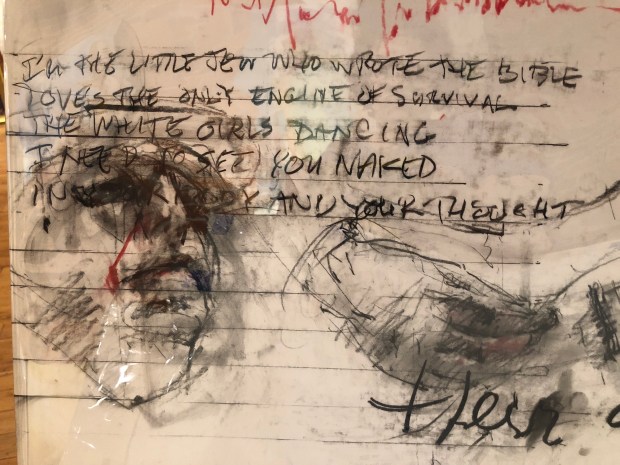 I'M THE LITTLE JEW WHO WROTE THE BIBLE
LOVES THE ONLY ENGINE OF SURVIVAL
THE WHITE GIRLS DANCING
I NEED TO SEE YOU NAKED
IN BODY AND YOUR THOUGHT
their